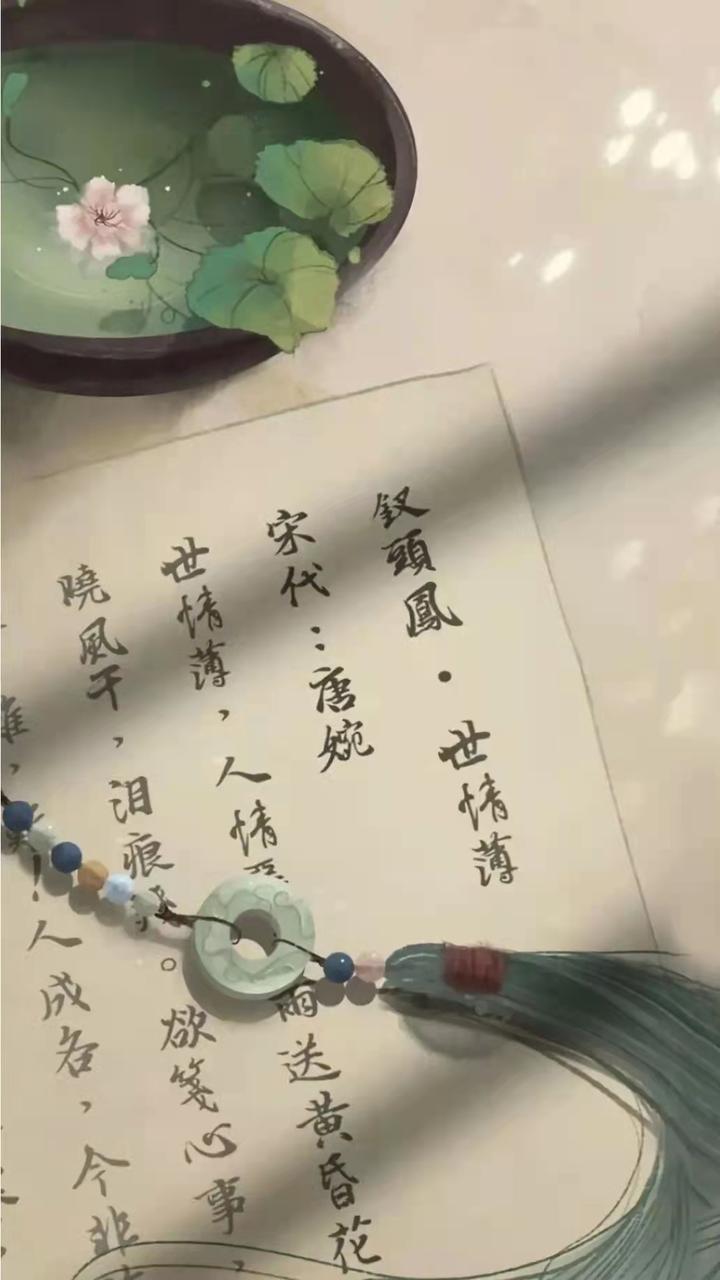 釵頭鳳·世情薄
宋代：唐婉
世情薄，人情雨送黄昏花
曉風干，泪痕。欲箋心事，
！人成各，今非